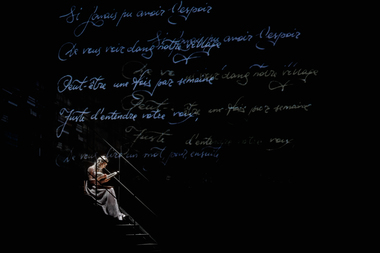 Si j'avais pu avoir l'espoir
Si j'avais pu avoir l'espoir
De vous voir dans notre village
De vous voir dans notre village
Peut-être une fois par semaine
Peut-être une fois par semaine
Juste d'entendre votre voix,
Juste d'entendre votre voix
un mot, puis ensuite